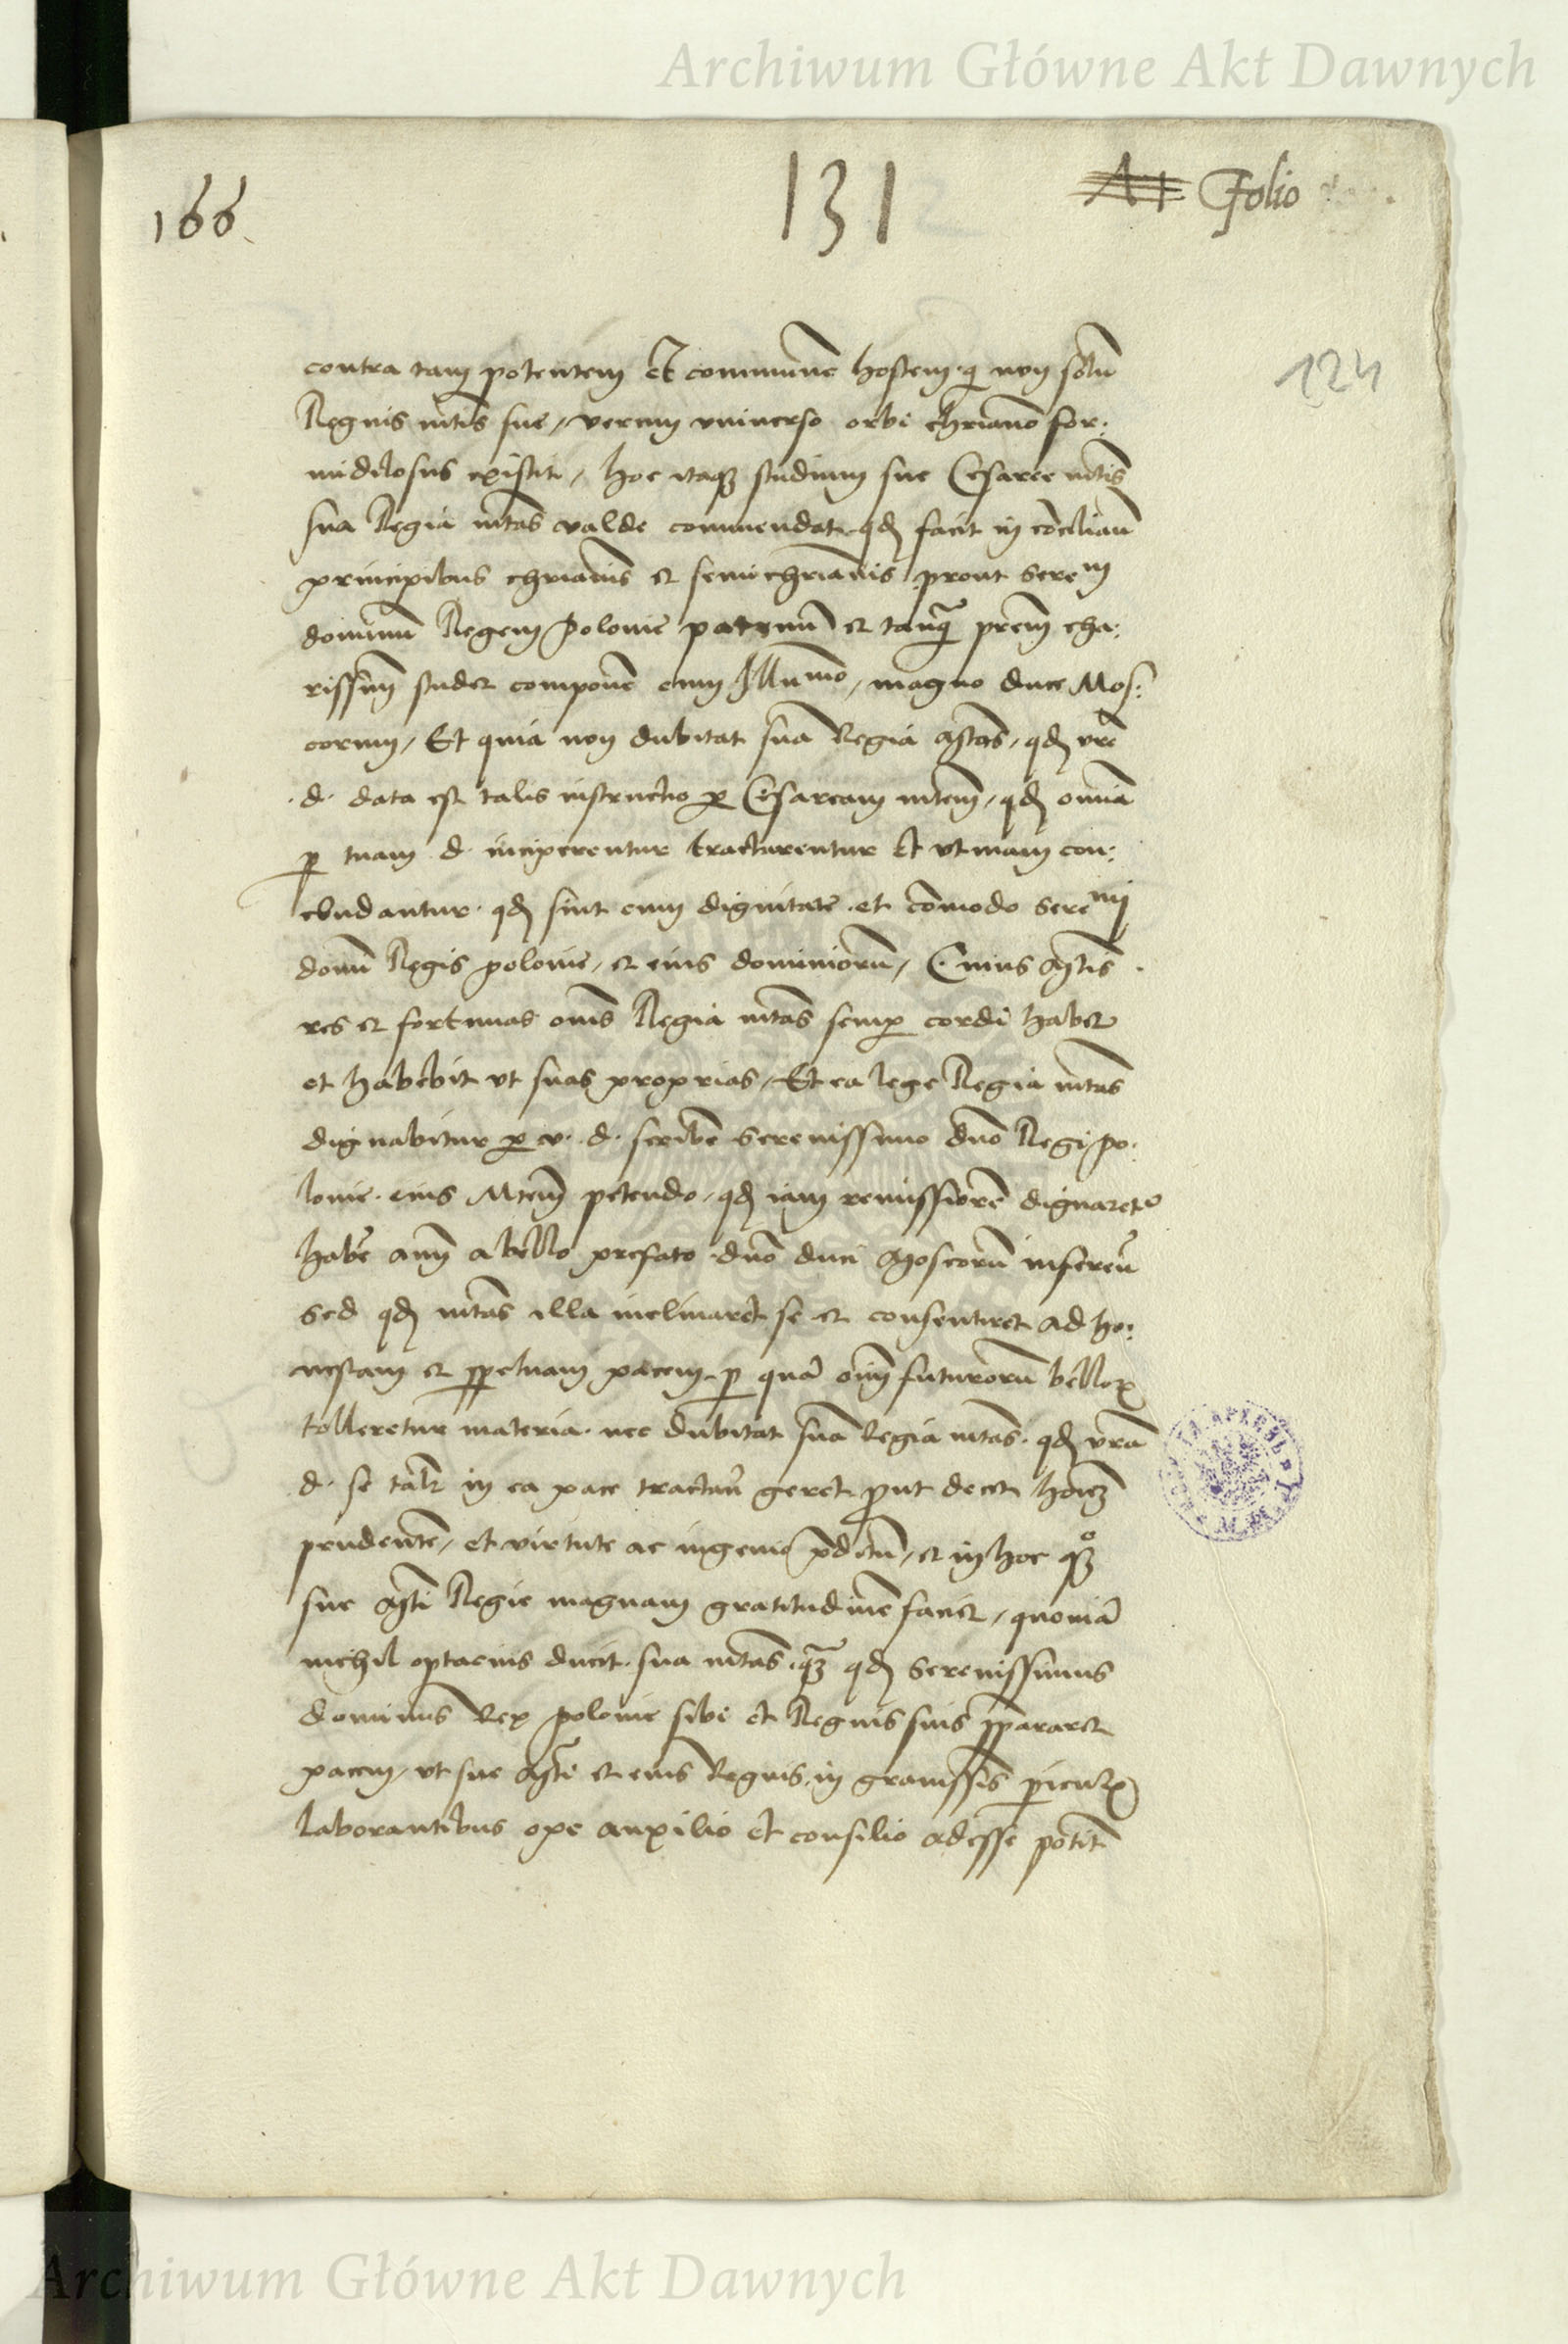 Archiwum Główne Akt Dawnych
166
131
Folio
124
contra tam potentem Et commune hostem. q non solu
Regnis mtis sue, verum vniuerso orbi christiano for:
midilosus existit, hoc itaq studium sue Cesaree mtis
sua Regia mtas valde commendat. qd facit in concilian
principibus christianis et semichristianis prout seren
dominum Regem Polonie patruu et tanq prem cha:
rissim studet compone cum Illumo, magno duce Mos:
corum, Et quia non dubitat sua Regia Mtas, qd vre
.d. data est talis instructio per Cesaream mtem, qd omnia
per tuam d. inciperentur tractarentur Et vtinam con:
cludantur. qd sint cum dignitate. et comodo sereni
domi Regis polonie, et eius dominioru, Cuius Mtis
res et fortunas omes Regia mtas semp cordi habet
et habebit vt suas proprias, Et ea lege Regia mtas
dignabitur per v. d. scribe serenissimo dno Regi po:
lonie. eius Mtem petendo, qd iam remissiore dignaret
habe anim a bello prefato dno duci Moscoru inferen
sed qd mtas illa inclinaret se et consentiret ad ho:
nestam et ppetuam pacem. p qua oim futuroru bellor
tolleretur materia. nec dubitat sua Regia mtas. qd vra
d. se talr in ea pace tractan geret. put decet hoiem
prudente, et virtute ac ingenio pditu, et in hoc qo
sue Mti Regie magnam gratitudine faciet, quonia
nichil optacius ducit. sua mtas. q qd serenissimus
dominus Rex polonie sibi et Regnis suis ppararet
pacem, vt sue Mti et eius Regnis in grauissis piculis
laborantibus ope auxilio et consilio adesse potit
Archiwum Główne Akt Dawnych